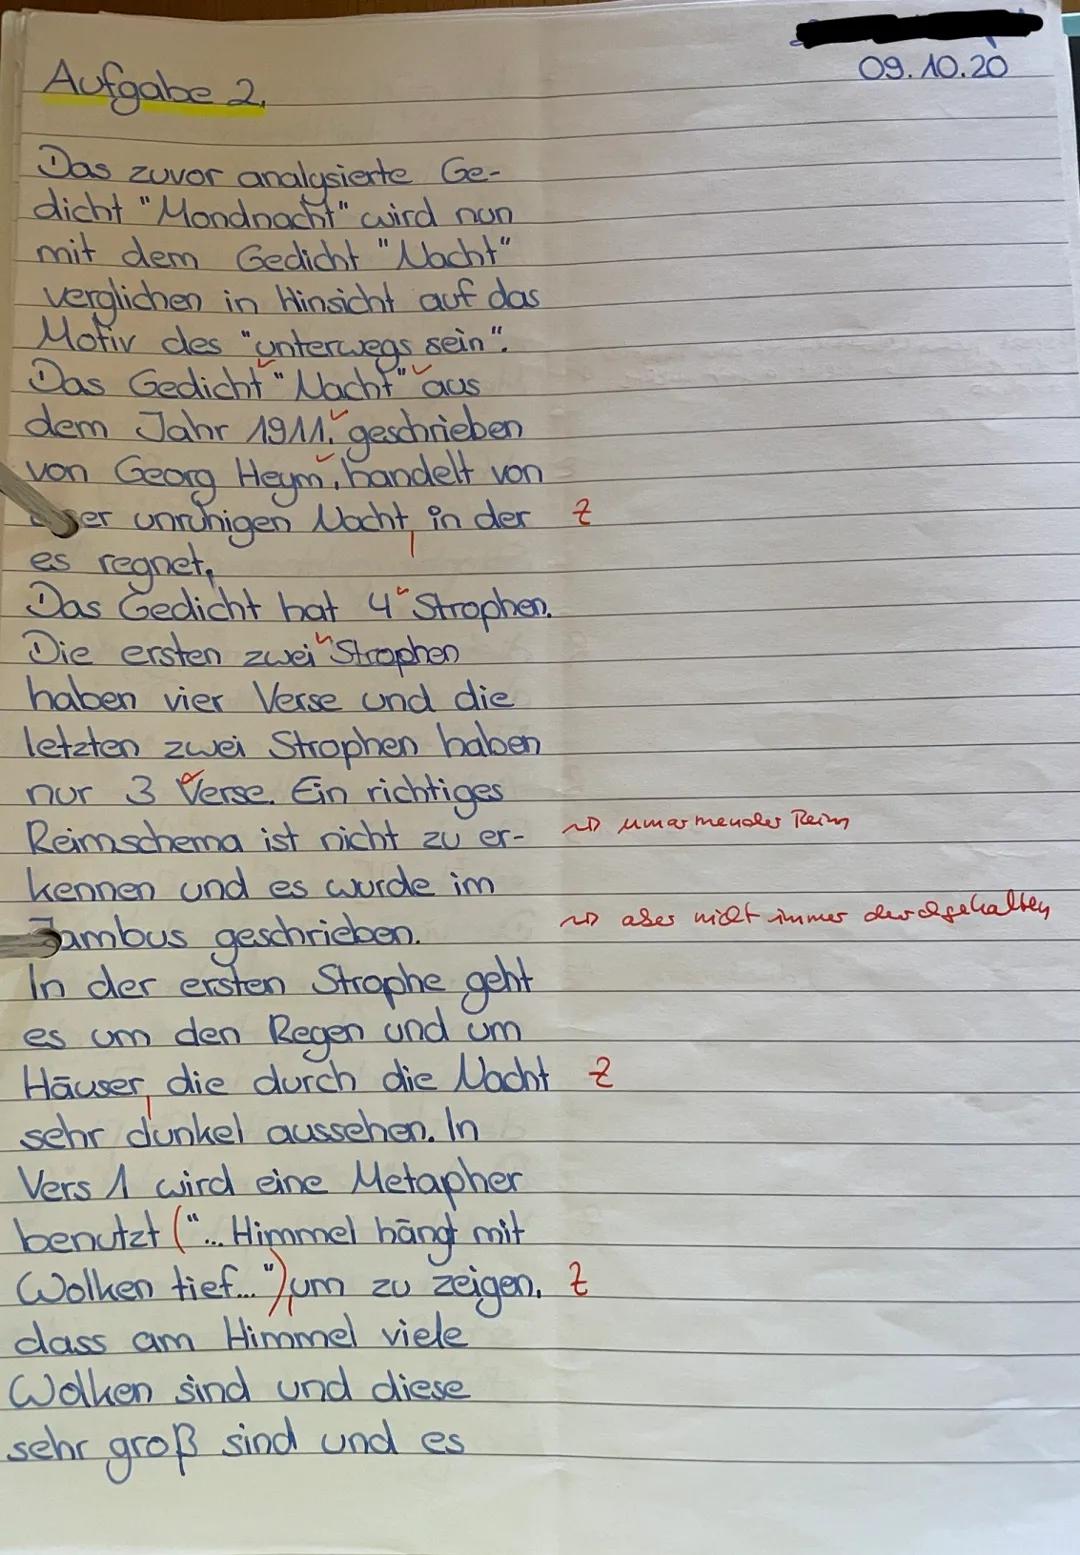 09.10.20
Aufgabe 2.
Das zuvor analysierte Ge-
dicht "Mondnacht" wird nun
mit dem Gedicht "Nacht"
verglichen in Hinsicht auf das
Motiv des "unterwegs sein".
Das Gedicht "Nacht" aus
dem Jahr 1911, geschrieben
von Georg Heym, handelt von
er unruhigen Nacht, in der Z
es regnet.
Das Gedicht hat 4 Strophen.
Die ersten zwei Strophen
haben vier Verse und die
letzten zwei Strophen haben
nur 3 Verse. Ein richtiges
Reimschema ist nicht zu er- ~> umarmender Reim
kennen und es wurde im
Jambus geschrieben. ~> aber nicht immer durchgehalten
In der ersten Strophe geht
es um den Regen und um
Häuser, die durch die Nacht Z
sehr dunkel aussehen. In
Vers 1 wird eine Metapher
benutzt ("... Himmel hängt mit
Wolken tief..."), um zu zeigen, Z
dass am Himmel viele
Wolken sind und diese
sehr groß sind und es